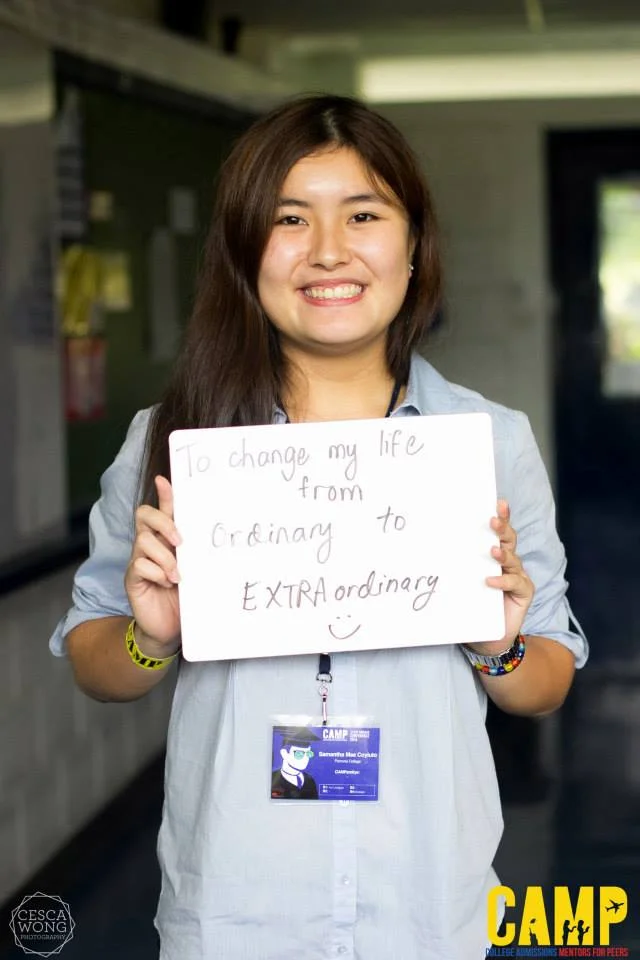 To change my life
from
Ordinary to
EXTRAordinary
CAMP
Samantha Mae Coyiuto
Pomona College
CESCA
WONG
PHOTOGRAPHY
CAMP
COLLEGE ADMISSIONS MENTORS FOR PEERS